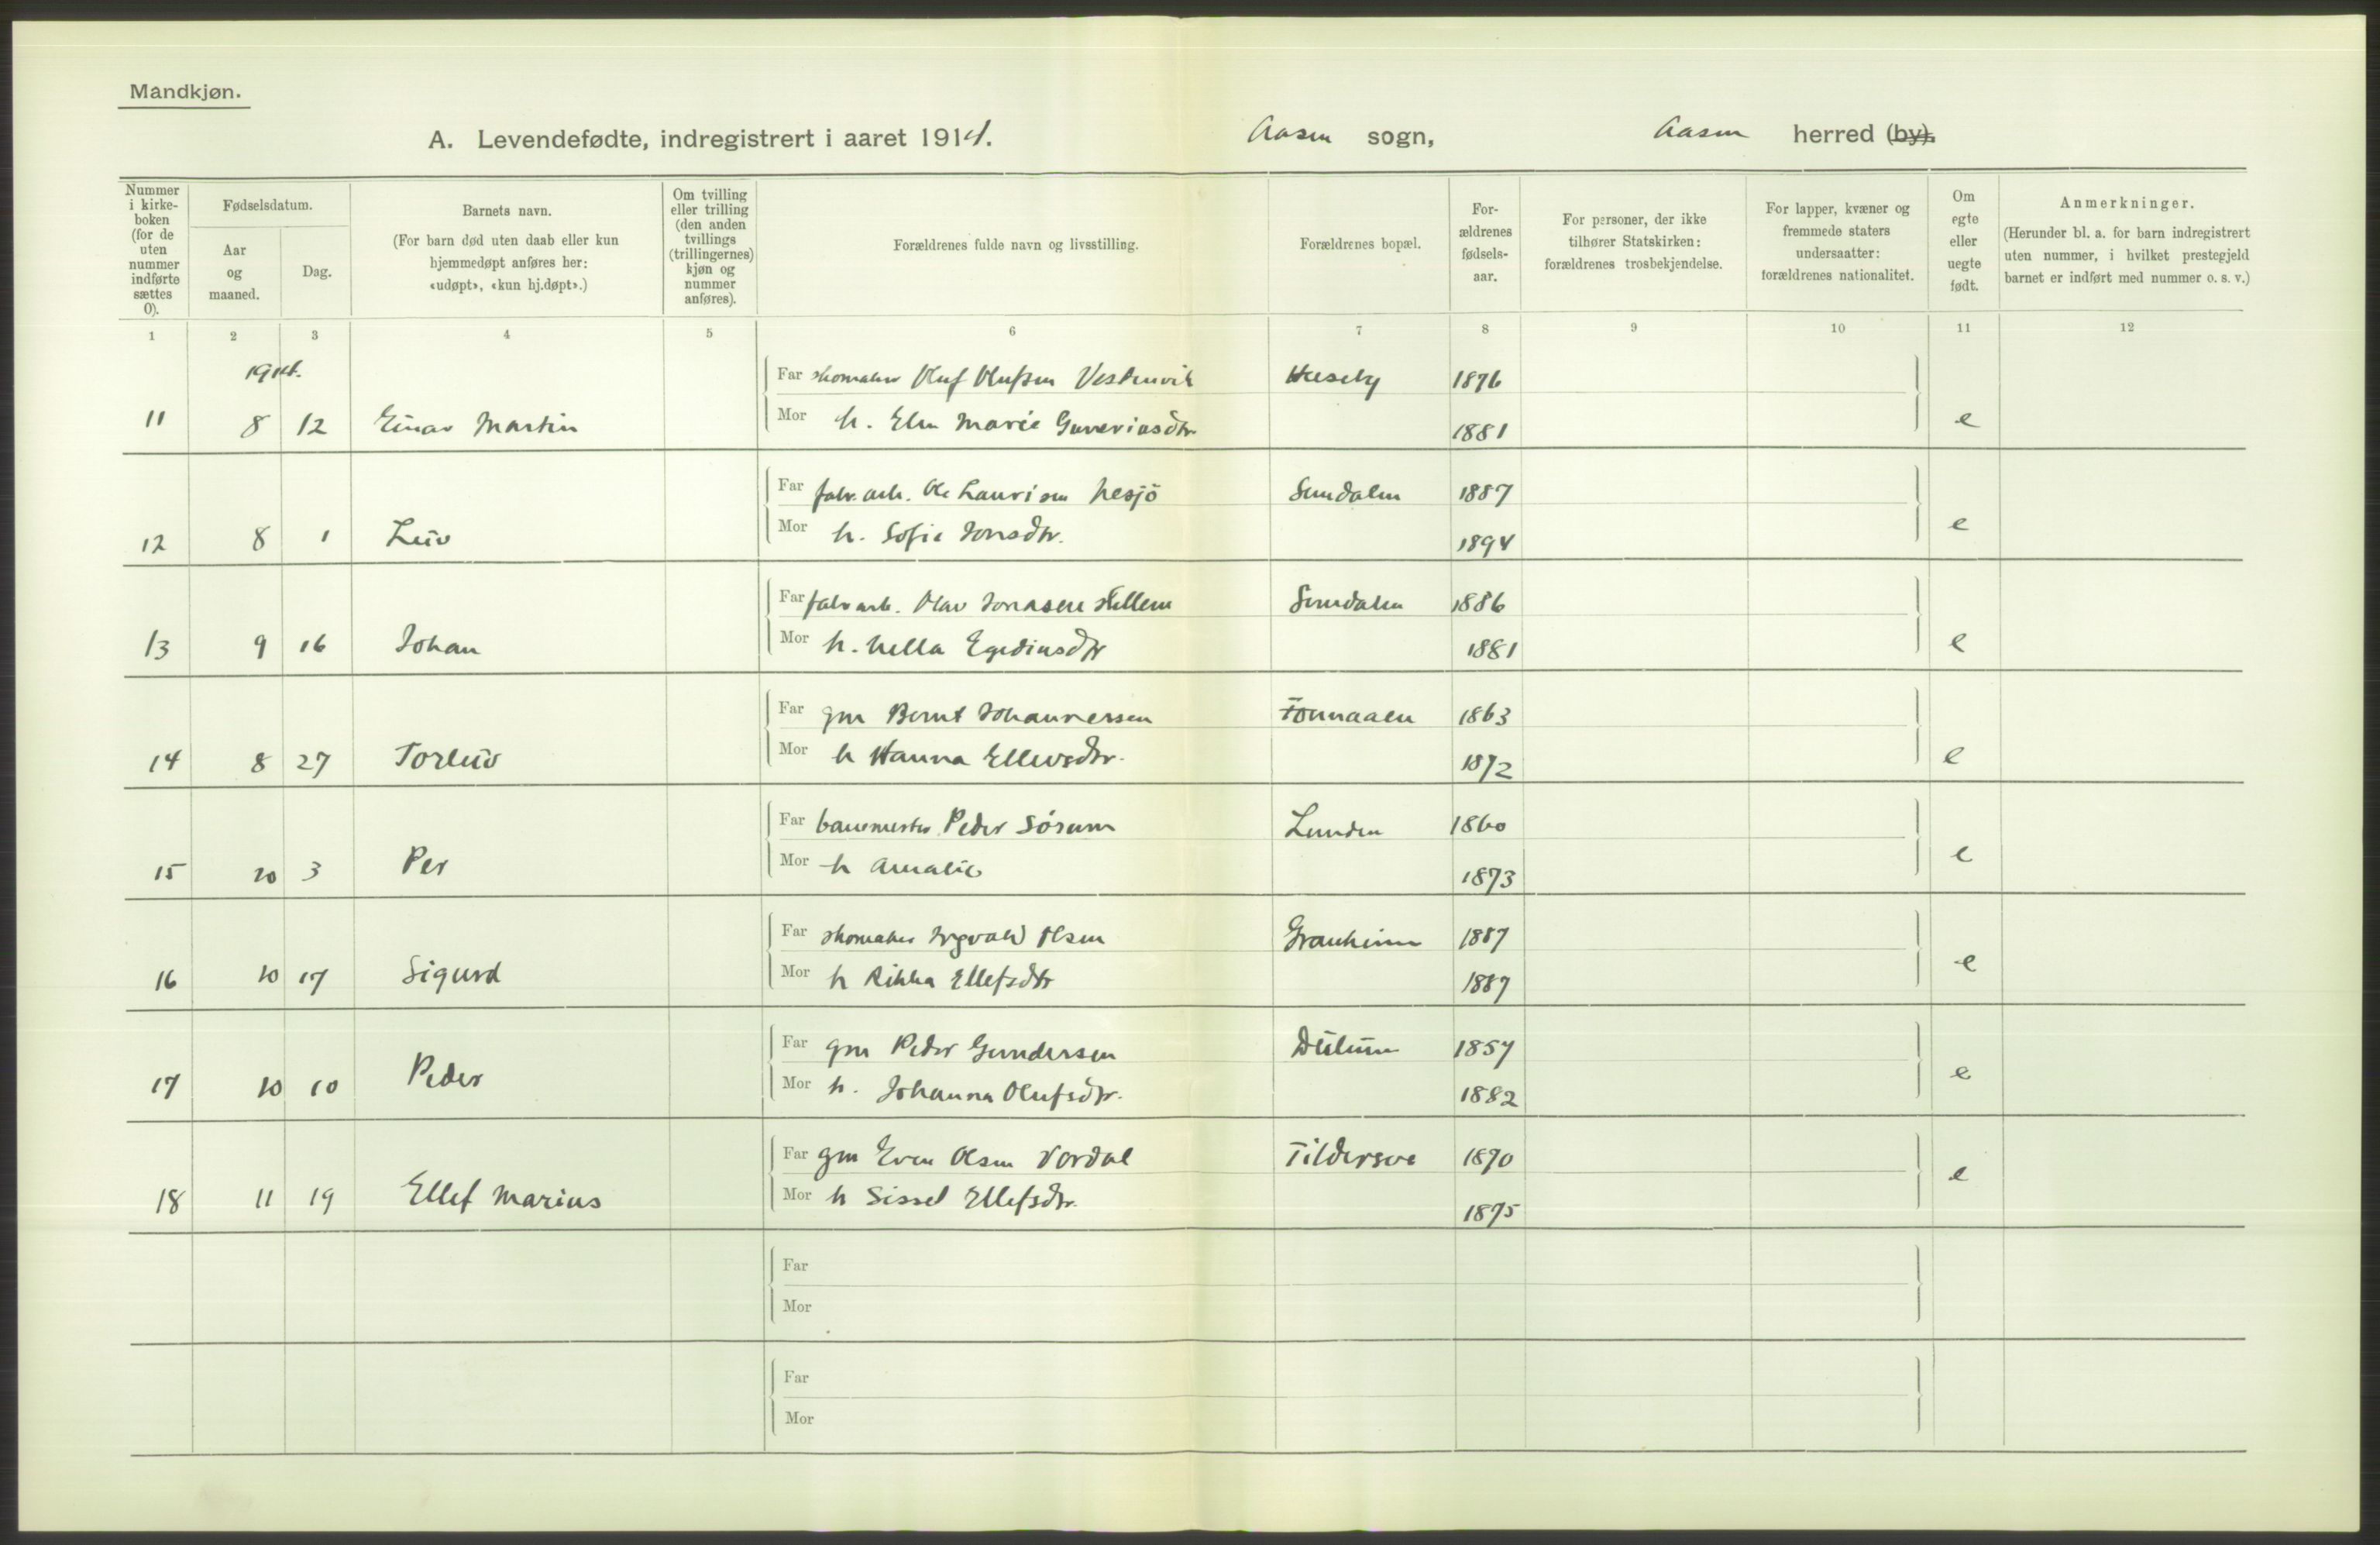 Mandkjøn.
A. Levendefødte, indregistrert i aaret 1914. Aasen sogn, Aasen herred (by).
Nummer i kirke- boken (for de uten nummer indførte sættes 0).
Fødselsdatum.
Aar og maaned.
Dag.
Barnets navn.
(For barn død uten daab eller kun hjemmedøpt anføres her: «udøpt», «kun hj.døpt».)
Om tvilling eller trilling (den anden tvillings (trillingernes) kjøn og nummer anføres).
Forældrenes fulde navn og livsstilling.
Forældrenes bopæl.
For- ældrenes fødsels- aar.
For personer, der ikke tilhører Statskirken: forældrenes trosbekjendelse.
For lapper, kvæner og fremmede staters undersaatter: forældrenes nationalitet.
Om egte eller uegte født.
Anmerkninger.
(Herunder bl. a. for barn indregistrert uten nummer, i hvilket prestegjeld barnet er indført med nummer o. s. v.)
1 2 3 4 5 6 7 8 9 10 11 12
1914.
Far skomaker Oluf Olufsen Vestervik Huseby 1876
11 8 12 Einar Martin Mor h. Elen Marie 1881 e
Far fabr. arb. Ole Laurisen Nesjö Sundalen 1887
12 8 1 Leiv Mor h. Sofie Jonsdtr. 1894 e
Far fabr arb. Olav Jonasen Sundalen 1886
13 9 16 Johan Mor h. Nella Egediusdtr 1881 e
Far gm Bernt Johannessen 1863
14 8 27 Torleiv Mor h Hanna Ellevsdtr. 1872 e
Far banemester Peder Sörum Lunden 1860
15 10 3 Per Mor h Amalie 1873 e
Far skomaker Ingvald Olsen Granheim 1887
16 10 17 Sigurd Mor h Rikka Ellefsdtr 1887 e
Far gm Peder Gundersen Dullum 1857
17 10 10 Peder Mor h. Johanna Olufsdtr. 1882 e
Far gm Even Olsen Vordal 1870
18 11 19 Ellef Marius Mor h Sissel Ellefsdtr. 1875 e
Far
Mor
Far
Mor